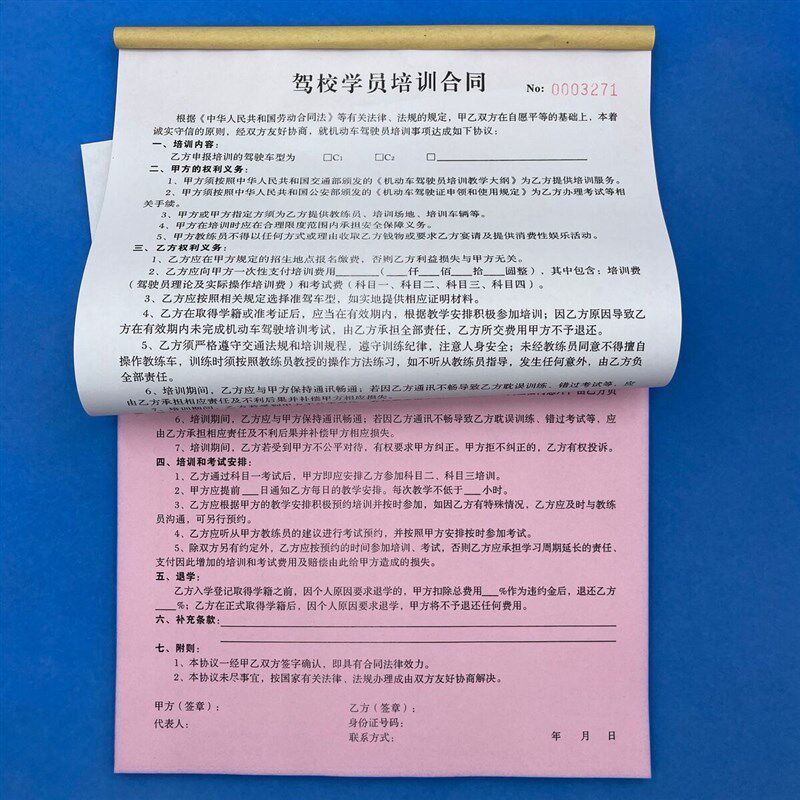 驾校学员培训合同
No: 0003271
根据《中华人民共和国劳动合同法》等有关法律、法规的规定，甲乙双方在自愿平等的基础上，本着
诚实守信的原则，经双方友好协商，就机动车驾驶员培训事项达成如下协议：
一、培训内容：
乙方申报培训的驾驶车型为 □C1 □C2 □
二、甲方的权利义务：
1、甲方须按照中华人民共和国交通部颁发的《机动车驾驶员培训教学大纲》为乙方提供培训服务。
2、甲方须按照中华人民共和国公安部颁发的《机动车驾驶证申领和使用规定》为乙方办理考试等相
关手续。
3、甲方或甲方指定方须为乙方提供教练员、培训场地、培训车辆等。
4、甲方在培训时应在合理限度范围内承担安全保障义务。
5、甲方教练员不得以任何方式或理由收取乙方钱物或要求乙方宴请及提供消费性娱乐活动。
三、乙方权利义务：
1、乙方应在甲方规定的招生地点报名缴费，否则乙方利益损失与甲方无关。
2、乙方应向甲方一次性支付培训费用________（____仟____佰____拾____圆整），其中包含：培训费
（驾驶员理论及实际操作培训费）和考试费（科目一、科目二、科目三、科目四）。
3、乙方应按照相关规定选择准驾车型，如实地提供相应证明材料。
4、乙方在取得学籍或准考证后，应当在有效期内，根据教学安排积极参加培训；因乙方原因导致乙
方在有效期内未完成机动车驾驶培训考试，由乙方承担全部责任，乙方所交费用甲方不予退还。
5、乙方须严格遵守交通法规和培训规程，遵守训练纪律，注意人身安全；未经教练员同意不得擅自
操作教练车，训练时须按照教练员教授的操作方法练习，如不听从教练员指导，发生任何意外，由乙方负
全部责任。
6、培训期间，乙方应与甲方保持通讯畅通；若因乙方通讯不畅导致乙方耽误训练、错过考试等，应
由乙方承担相应责任及不利后果并补偿甲方相应损失。
6、培训期间，乙方应与甲方保持通讯畅通；若因乙方通讯不畅导致乙方耽误训练、错过考试等，应
由乙方承担相应责任及不利后果并补偿甲方相应损失。
7、培训期间，乙方若受到甲方不公平对待，有权要求甲方纠正。甲方拒不纠正的，乙方有权投诉。
四、培训和考试安排：
1、乙方通过科目一考试后，甲方即应安排乙方参加科目二、科目三培训。
2、甲方应提前___日通知乙方每日的教学安排。每次教学不低于___小时。
3、乙方应根据甲方的教学安排积极预约培训并按时参加，如因乙方有特殊情况，乙方应及时与教练
员沟通，可另行预约。
4、乙方应听从甲方教练员的建议进行考试预约，并按照甲方安排按时参加考试。
5、除双方另有约定外，乙方应按预约的时间参加培训、考试，否则乙方应承担学习周期延长的责任、
支付因此增加的培训和考试费用及赔偿由此给甲方造成的损失。
五、退学：
乙方入学登记取得学籍之前，因个人原因要求退学的，甲方扣除总费用___%作为违约金后，退还乙方
___%；乙方在正式取得学籍后，因个人原因要求退学，甲方将不予退还任何费用。
六、补充条款：
七、附则：
1、本协议一经甲乙双方签字确认，即具有合同法律效力。
2、本协议未尽事宜，按国家有关法律、法规办理或由双方友好协商解决。
甲方（签章）： 乙方（签章）：
代表人： 身份证号码：
联系方式： 年 月 日